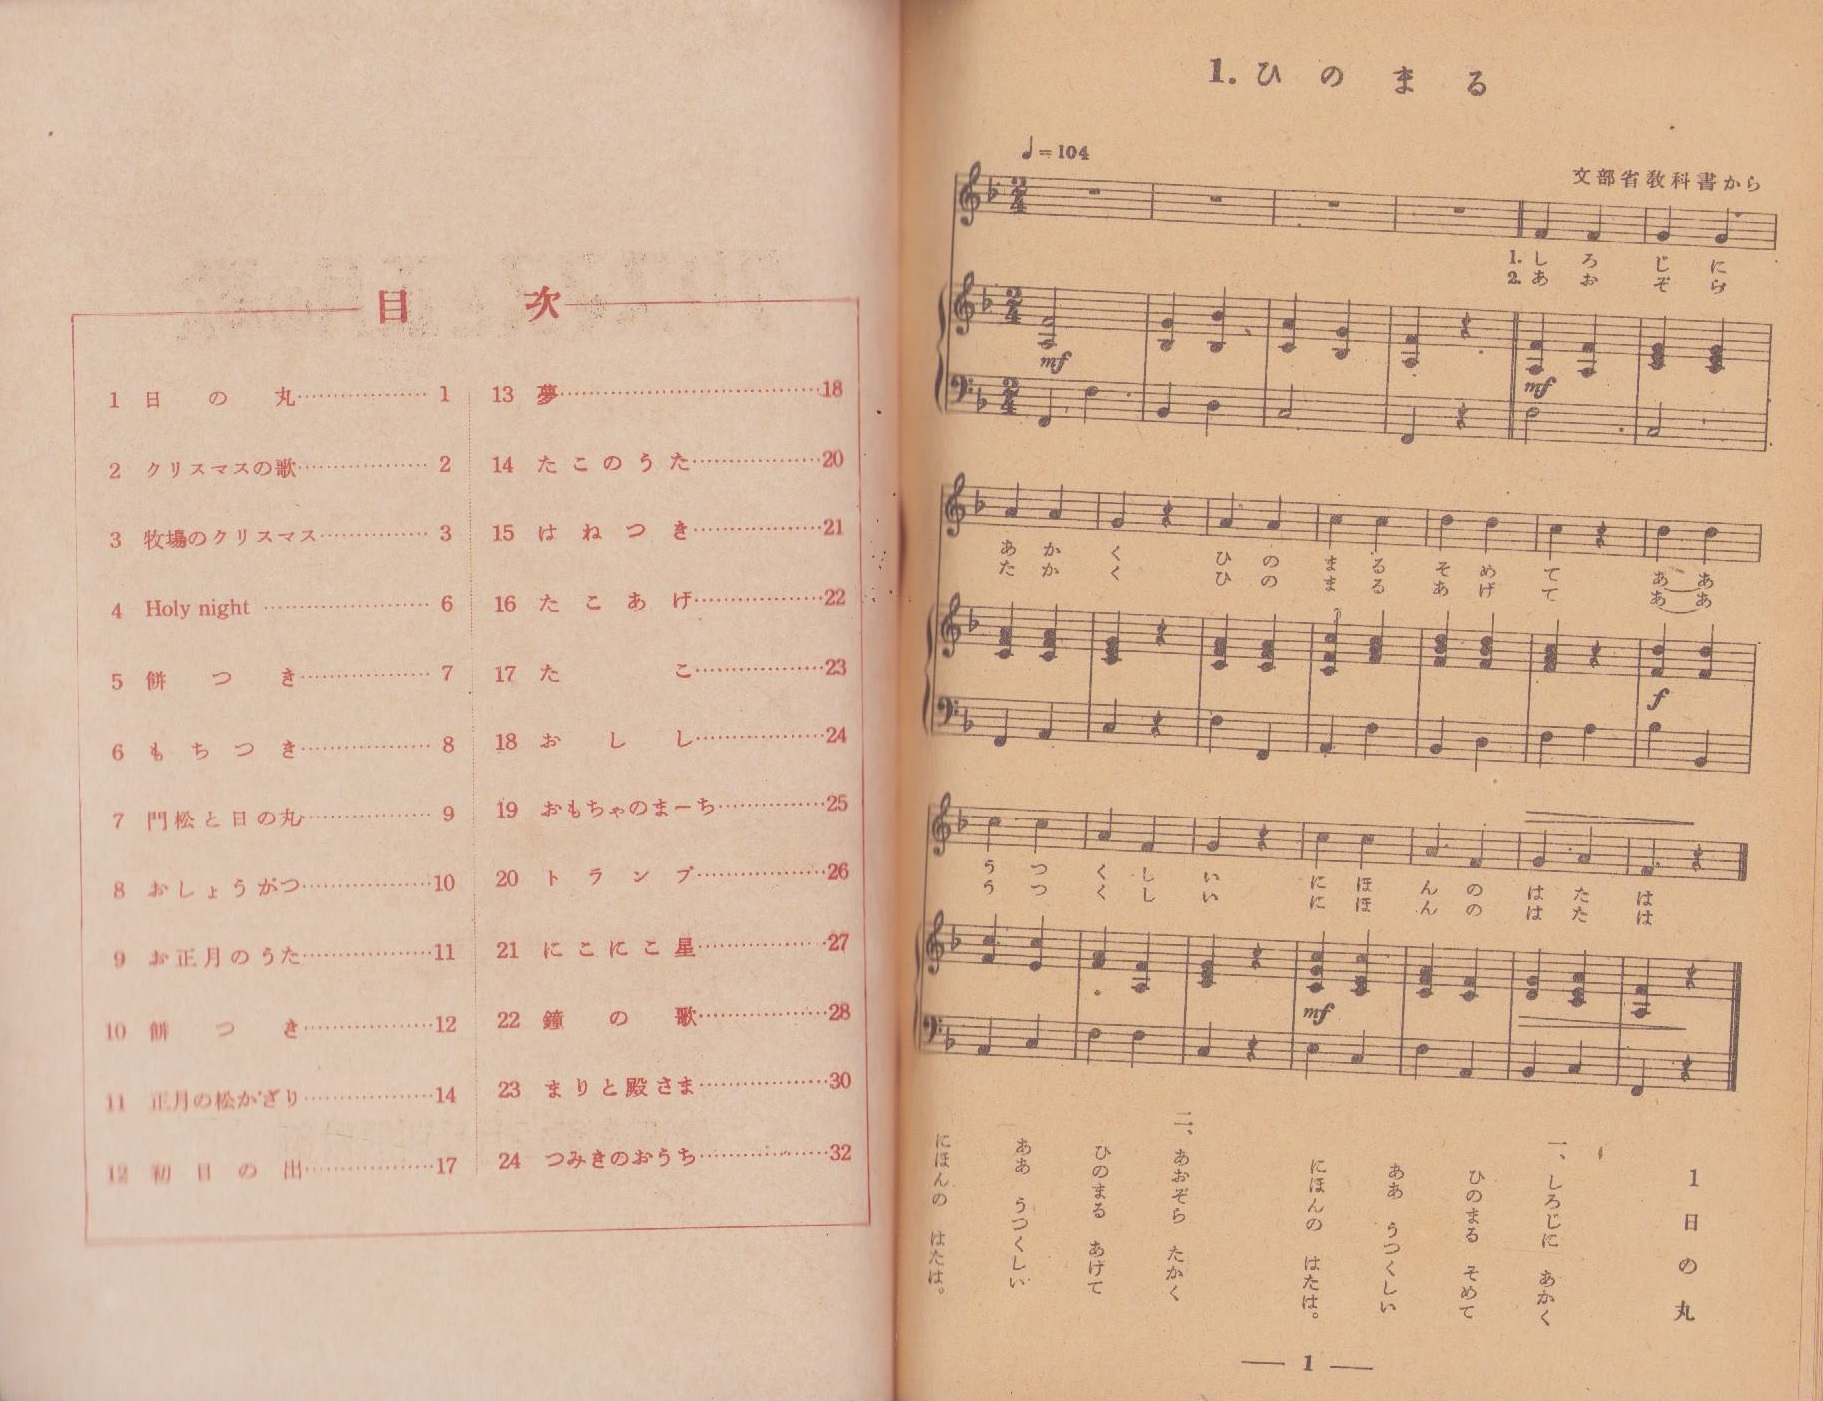 目次
1 日の丸 1
2 クリスマスの歌 2
3 牧場のクリスマス 3
4 Holy night 6
5 餅つき 7
6 もちつき 8
7 門松と日の丸 9
8 おしょうがつ 10
9 お正月のうた 11
10 餅つき 12
11 正月の松かざり 14
12 初日の出 17
13 夢 18
14 たこのうた 20
15 はねつき 21
16 たこあげ 22
17 たこ 23
18 おしし 24
19 おもちゃのまーち 25
20 トランプ 26
21 にこにこ星 27
22 鐘の歌 28
23 まりと殿さま 30
24 つみきのおうち 32
1. ひのまる
♩=104
文部省教科書から
2/4
1. しろじに
2. あおぞら
mf
mf
あかくひのまるそめてああ
たかくひのまるあげてああ
f
うつくしいにほんのはたは
うつくしいにほんのはたは
mf
1 日の丸
一、しろじに あかく
ひのまる そめて
ああ うつくしい
にほんの はたは。
二、あおぞら たかく
ひのまる あげて
ああ うつくしい
にほんの はたは。
— 1 —